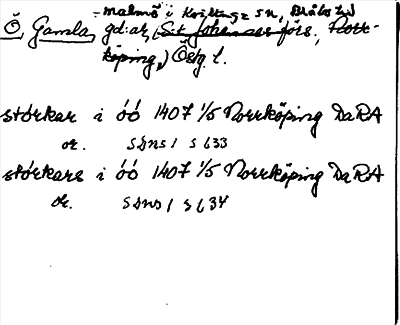 -malmö i Kvillinge sn, Bråbo hd
Ö, Gamla, gd:ar, (S:t Johannes förs., Norr-
köping,) Östg. l.
størkar i óó 1407 1/5 Norrköping DaRA
or. SDns 1 s 633
størkars i óó 1407 1/5 Norrköping DaRA
or. SDns 1 s 634